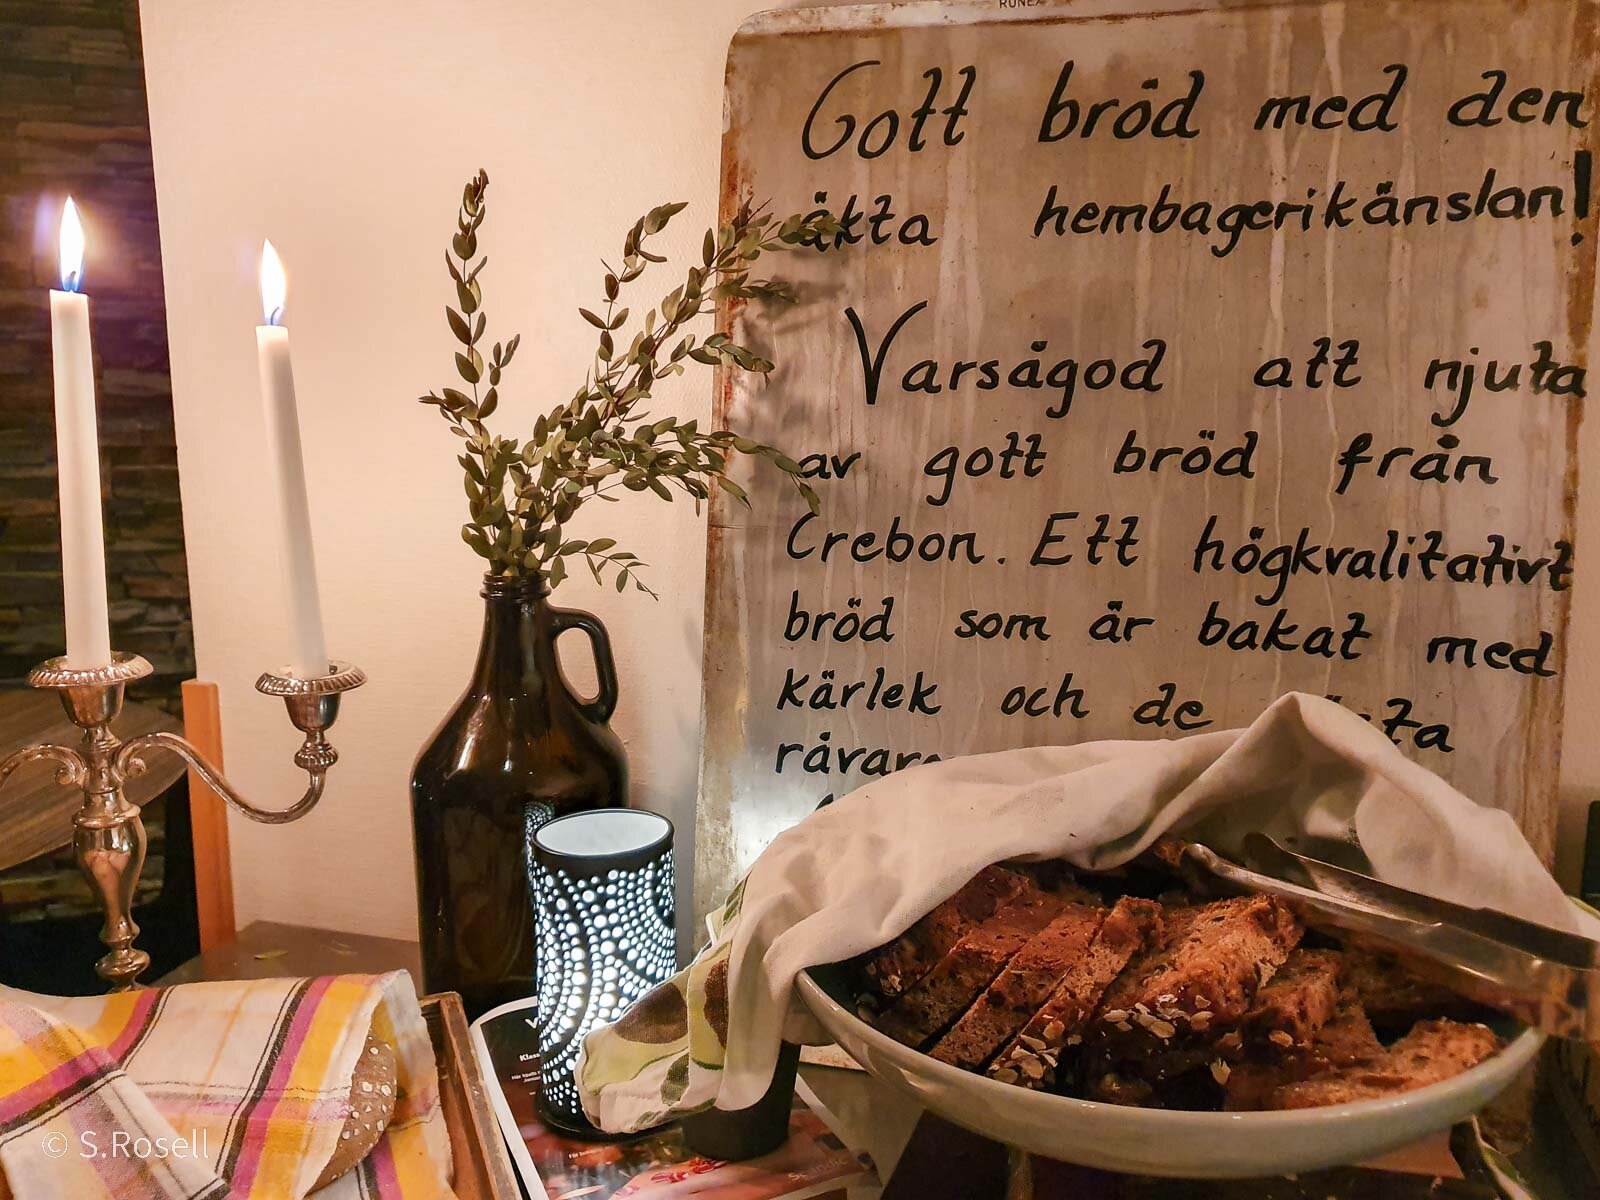 RUNEX
Gott bröd med den
äkta hembagerikänslan!
Varsågod att njuta
av gott bröd från
Crebon. Ett högkvalitativt
bröd som är bakat med
kärlek och de
© S.Rosell